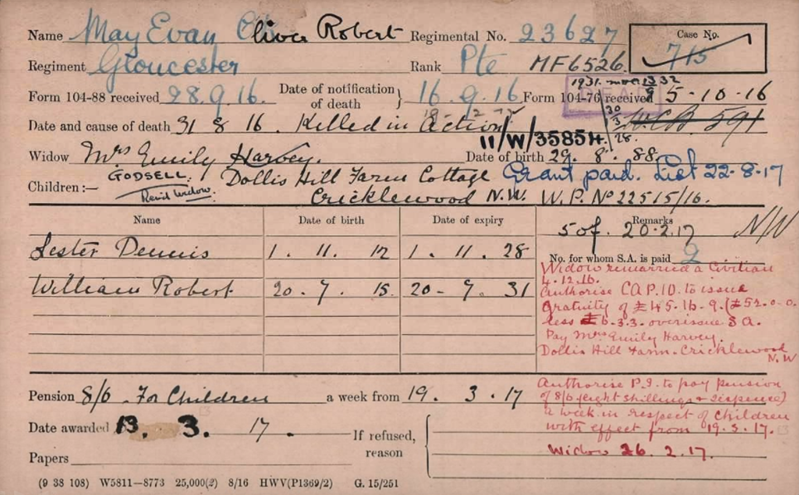 Name May Evan Oliver Robert Regimental No. 23627 Case No. 715
Regiment Gloucester Rank Pte MF6526
Form 104-88 received 28.9.16. Date of notification of death } 16.9.16. Form 104-76 received 5-10-16
Date and cause of death 31 8 16. Killed in action
11/W/35854.
Widow Mrs Emily Harvey. Date of birth 29. 8. 88.
GODSELL.
Remd Widow.
Children:— Dollis Hill Farm Cottage Grant paid. List 22-8-17
Cricklewood N.W. W.P. No 22515/16.
Name Date of birth Date of expiry Remarks
5/- of. 20.2.17 N/W
No. for whom S.A. is paid 2
Lester Dennis 1. 11. 12 1. 11. 28
William Robert 20 - 7. 15. 20 - 7. 31
Widow remarried a Civilian
4.12.16.
Authorise CAP.10. to issue
gratuity of £45.16.9. (£52.0.0.
less £6.3.3. overissue SA.
Pay Mrs Emily Harvey.
Dollis Hill Farm. Cricklewood
N.W
Pension 8/6 For Children a week from 19. 3. 17
Date awarded 13. 3. 17.
Papers
If refused, reason
Authorise P.I. to pay pension
of 8/6 (eight shillings & sixpence)
a week in respect of children
with effect from 19.3.17.
Widow 26.2.17.
(9 38 108) W5811—8773 25,000(2) 8/16 HWV(P1369/2) G. 15/251